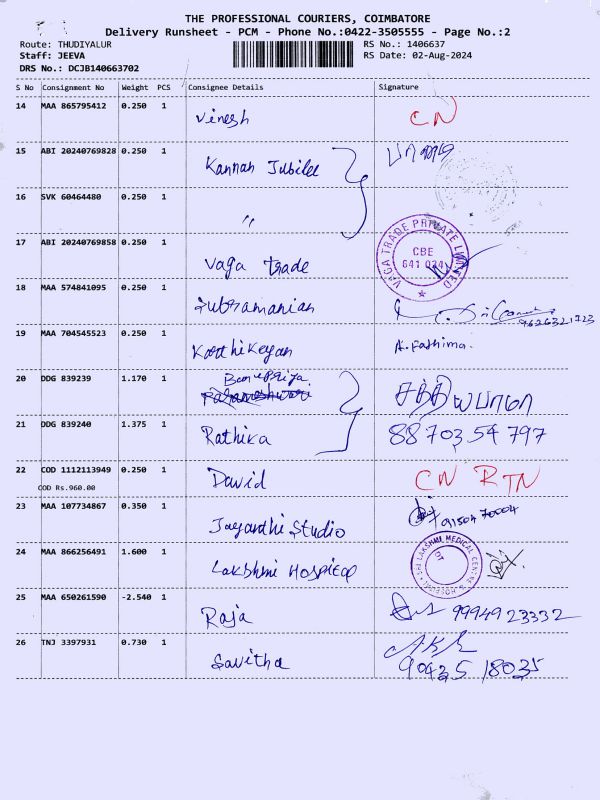 THE PROFESSIONAL COURIERS, COIMBATORE
Delivery Runsheet - PCM - Phone No.:0422-3505555 - Page No.:2
Route: THUDIYALUR
RS No.: 1406637
Staff: JEEVA
RS Date: 02-Aug-2024
DRS No.: DCJB140663702
S No Consignment No Weight PCS Consignee Details Signature
14 MAA 865795412 0.250 1 Vinesh CN
15 ABI 20240769828 0.250 1 Kannan Jubilee
16 SVK 60464480 0.250 1 〃
17 ABI 20240769858 0.250 1 Vaga Trade VAGA TRADE PRIVATE LIMITED CBE 641 034
18 MAA 574841095 0.250 1 Subramanian 9626321723
19 MAA 704545523 0.250 1 Karthikeyan A. Fathima.
20 DDG 839239 1.170 1 Banupriya சத்தியபாமா
21 DDG 839240 1.375 1 Rathika 8870354797
22 COD 1112113949 0.250 1 David CN RTN
COD Rs.960.00
23 MAA 107734867 0.350 1 Jayandhi Studio 9150470004
24 MAA 866256491 1.600 1 Lakshmi Hospital SRI LAKSHMI MEDICAL CENTRE & HOSPITAL OT
25 MAA 650261590 -2.540 1 Raja 9994923332
26 TNJ 3397931 0.730 1 Savitha 90425 18035